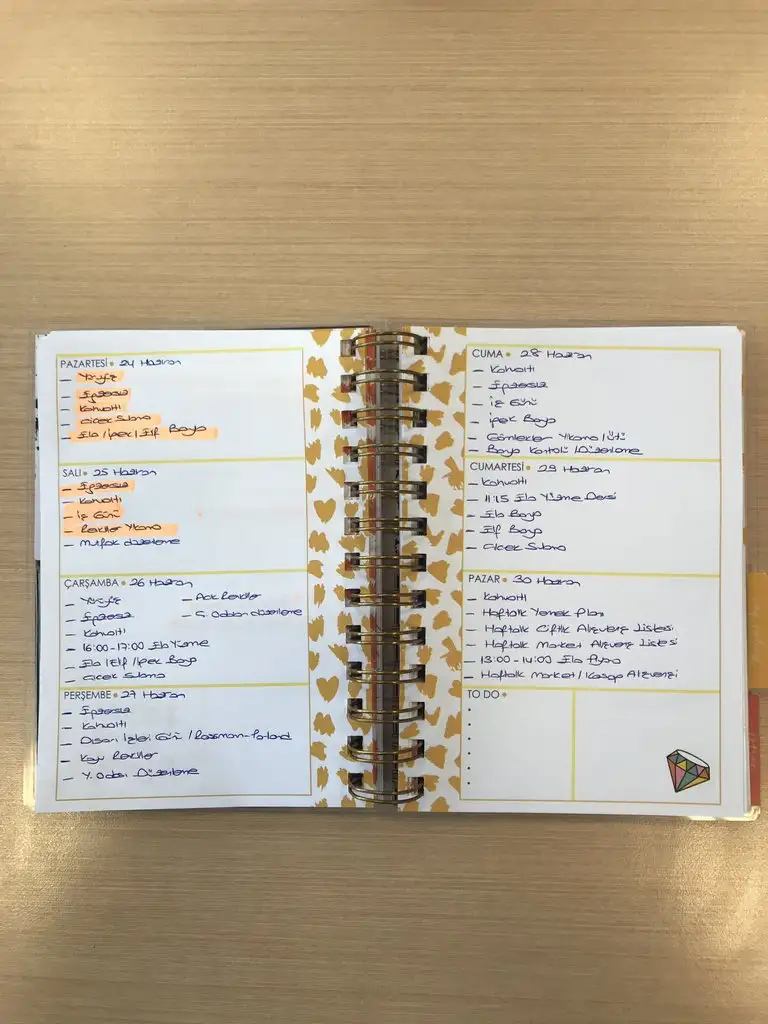 PAZARTESİ • 24 Haziran
- Yürüyüş
- Egzersiz
- Kahvaltı
- Çiçek Sulama
- Ela / İpek / Elif Banyo
SALI • 25 Haziran
- Egzersiz
- Kahvaltı
- İş Günü
- Renkliler Yıkama
- Mutfak düzenleme
ÇARŞAMBA • 26 Haziran
- Yürüyüş
- Egzersiz
- Kahvaltı
- 16:00-17:00 Ela Yüzme
- Ela / Elif / İpek Banyo
- Çiçek Sulama
- Açık Renkliler
- Ç. Odası düzenleme
PERŞEMBE • 27 Haziran
- Egzersiz
- Kahvaltı
- Dışarı İşleri Günü /
- Koyu Renkliler
- Y. Odası Düzenleme
CUMA • 28 Haziran
- Kahvaltı
- Egzersiz
- İş Günü
- İpek Banyo
- Gömlekler Yıkama / Ütü
- Banyo Düzenleme
CUMARTESİ • 29 Haziran
- Kahvaltı
- 11:15 Ela Yüzme Dersi
- Ela Banyo
- Elif Banyo
- Çiçek Sulama
PAZAR • 30 Haziran
- Kahvaltı
- Haftalık Yemek Planı
- Haftalık Çiftlik Alışveriş Listesi
- Haftalık Market Alışveriş Listesi
- 13:00-14:00 Ela Piyano
- Haftalık Market / Kasap Alışverişi
TO DO •